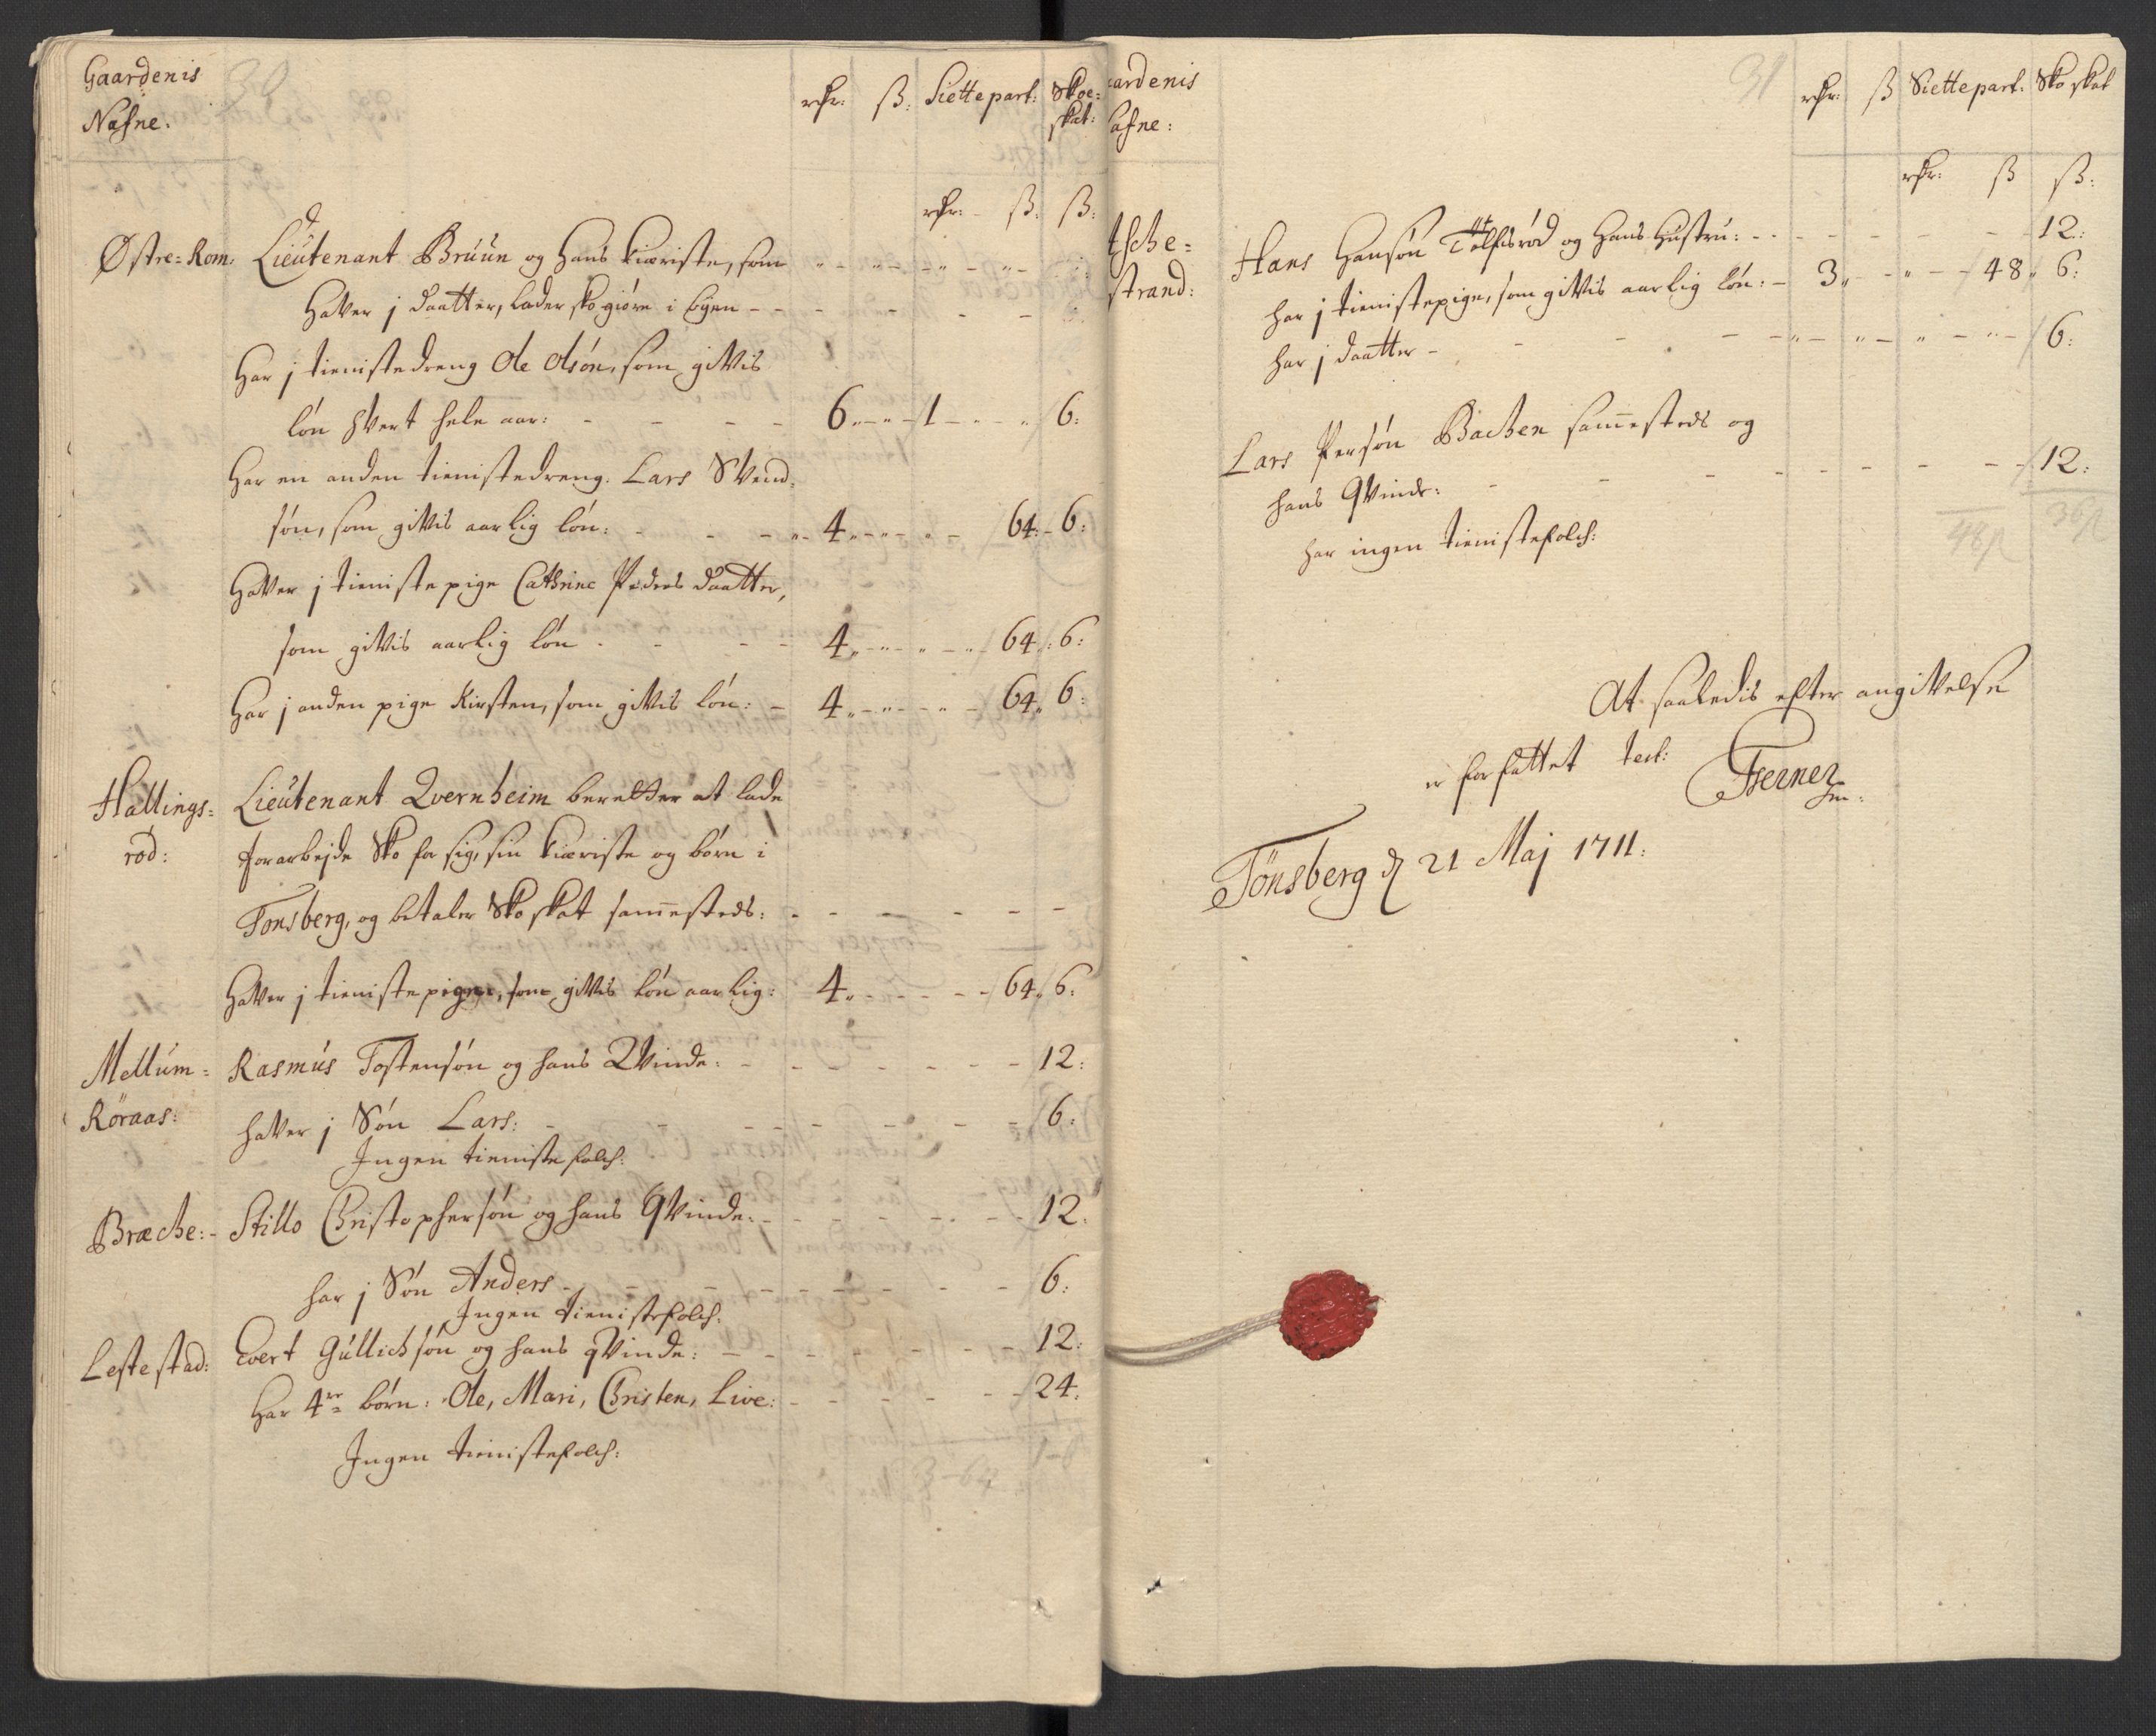 Gaardenis
Nafne.
30
rdr: ß: Siettepart: Skoe-
skat:
rdr: ß: ß:
Østre-Rom: Lieutenant Bruun og hans kiæriste, som
haver j daatter, lader sko giøre i byen
har j tienistedreng Ole Olsøn, som givis
løn hvert hele aar: 6 1 6:
har en anden tienistedreng Lars Svend-
søn, som givis aarlig løn: 4 64: 6:
haver j tieniste pige Cathrine Peders daatter,
som givis aarlig løn 4 64 6:
har j anden pige Kirsten, som givis løn: 4 64 6:
Hallings- Lieutenant Qvernheim beretter at lade
rød: forarbejde Sko for sig, sin kiæriste og børn i
Tønsberg, og betaler Sko skat sammesteds:
haver j tieniste pige, som givis løn aarlig: 4 64 6:
Mellum- Rasmus Tostensøn og hans Qvinde: 12:
Røraas: haver j Søn Lars: 6:
Ingen tieniste folch:
Bræche: Stillo Christophersøn og hans Qvinde: 12:
har j Søn Anders 6:
Ingen tienistefolch:
Lestestad: Evert Gullichsøn og hans qvinde: 12:
har 4re børn: Ole, Mari, Christen, Live: 24:
Ingen tienistefolch:
aardenis
afne:
31
rdr: ß Siettepart. Sko skat
rdr: ß ß:
tsche-
strand:
Hans Hansøn Tølfsrød og hans hustru: 12:
har j tienistepige, som givis aarlig løn: 3 48 6:
har j daatter 6:
Lars Persøn Bachen sammesteds og
hans Qvinde: 12:
har ingen tienistefolch:
48ß 36ß
At saaledis efter angivelse
er forfattet test:
Tønsberg d 21 Maj 1711: